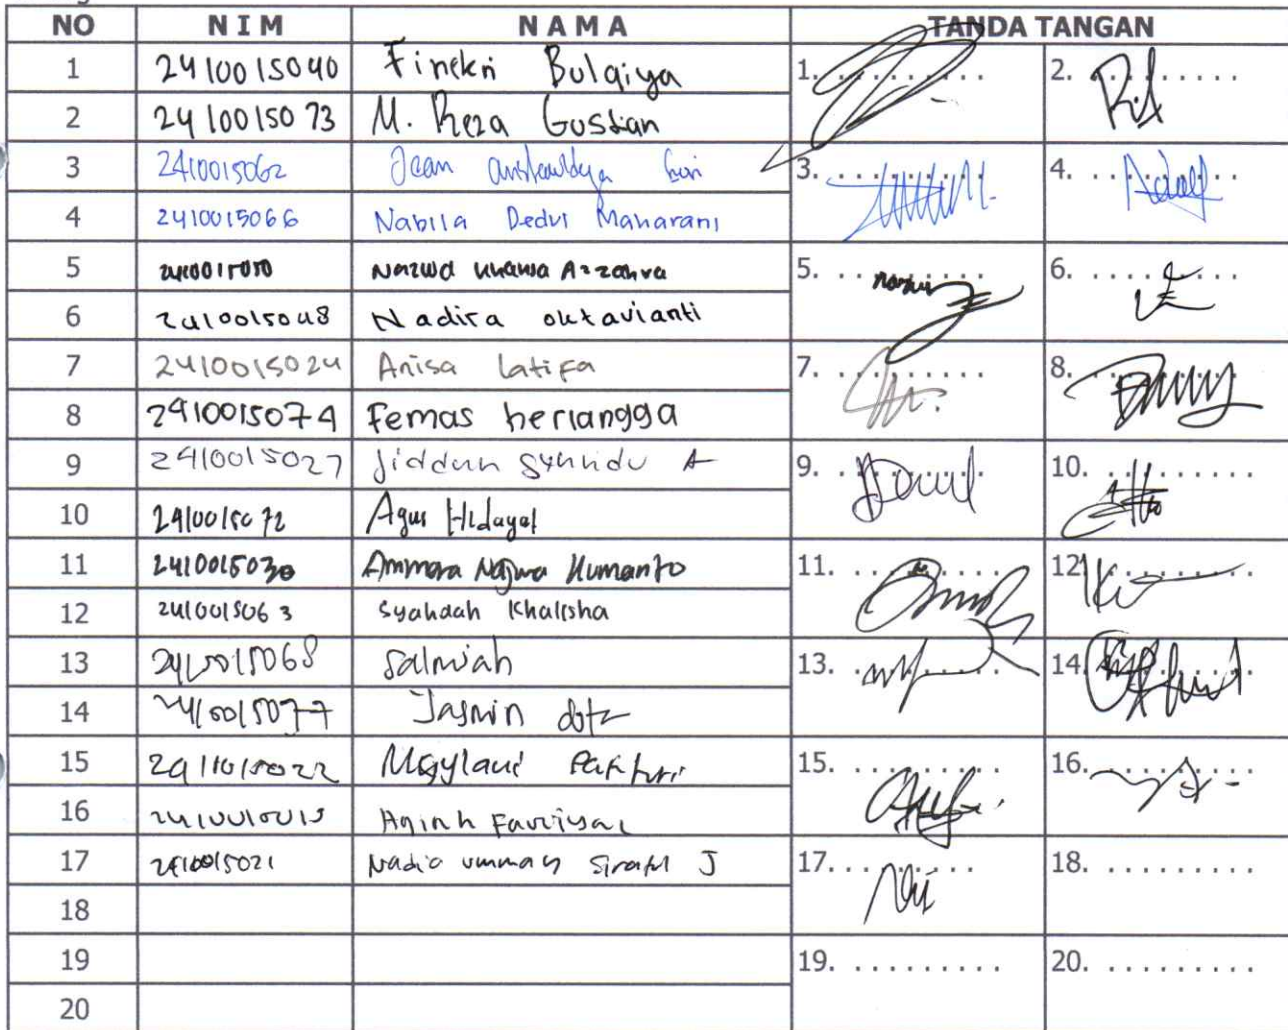 NO NIM NAMA TANDA TANGAN
1 2410015040 Finekri Bulqiya 1. . . . . . . . . . 2. . . . . . . . . .
2 2410015073 M. Reza Gustian
3 2410015062 Jean 3. . . . . . . . . . 4. . . . . . . . . .
4 2410015066 Nabila Dedvi Maharani
5 Nazwa Azzahra 5. . . . . . . . . . 6. . . . . . . . . .
6 2410015048 Nadira oktavianti
7 2410015024 Anisa latifa 7. . . . . . . . . . 8. . . . . . . . . .
8 2410015074 Femas herlangga
9 2410015027 Jiddan Syahidu A 9. . . . . . . . . . 10. . . . . . . . . .
10 2410015072 Agus Hidayat
11 2410015030 Ammara Najwa Humanto 11. . . . . . . . . . 12. . . . . . . . . .
12 2410015063 Syahdah Khalisha
13 2410015068 Salmiah 13. . . . . . . . . . 14. . . . . . . . . .
14 2410015077 Jasmin
15 2410015022 15. . . . . . . . . . 16. . . . . . . . . .
16
17 2410015021 Nadia ummay Siratul J 17. . . . . . . . . . 18. . . . . . . . . .
18
19 19. . . . . . . . . . 20. . . . . . . . . .
20